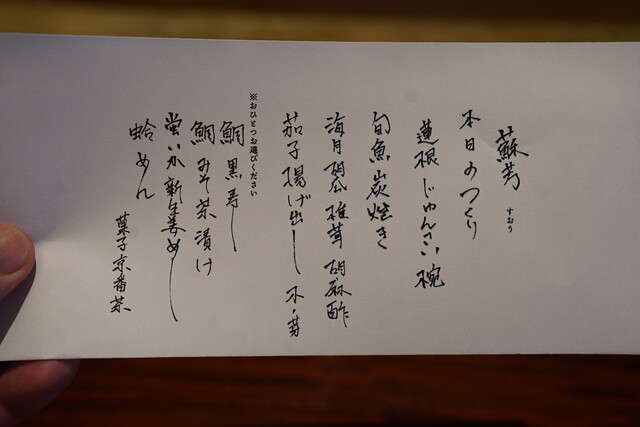 蘇芳
すおう
本日のつくり
蓮根じゅんさい椀
旬魚炭焼き
海月胡瓜椎茸胡麻酢
茄子揚げ出し 木の芽
※おひとつお選びください
鯛黒寿し
鯛みそ茶漬け
蛍いか新生姜めし
蛤めん
菓子京番茶